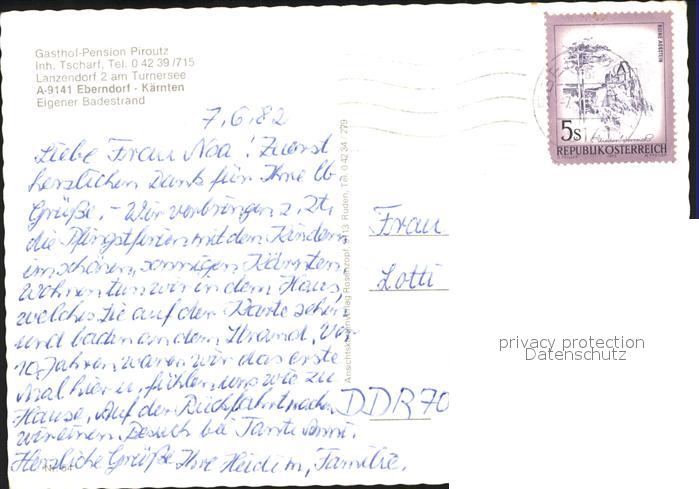 Gasthof-Pension Piroutz
Inh. Tscharf, Tel. 0 42 39 /715
Lanzendorf 2 am Turnersee
A-9141 Eberndorf - Kärnten
Eigener Badestrand
7.6.82
Liebe Frau Noa! Zuerst
herzlichen Dank für Ihre lb
Grüße. - Wir verbringen z. Zt.
die Pfingstferien mit den Kindern
im schönen, sonnigen Kärnten.
Wohnen tun wir in dem Haus
welches Sie auf der Karte sehen
und baden an dem Strand. Vor
10 Jahren waren wir das erste
Mal hier u. fühlen uns wie zu
Hause. Auf der Rückfahrt machen
wir einen Besuch bei Tante Anni.
Herzliche Grüße Ihre Heidi m. Familie.
Ansichtskartenverlag Rosenzopf, 9113 Ruden, Tel. 0 42 34 - 279
RUINE AGGSTEIN
5s
REPUBLIK ÖSTERREICH
Frau
Lotti
DDR 70
privacy protection
Datenschutz